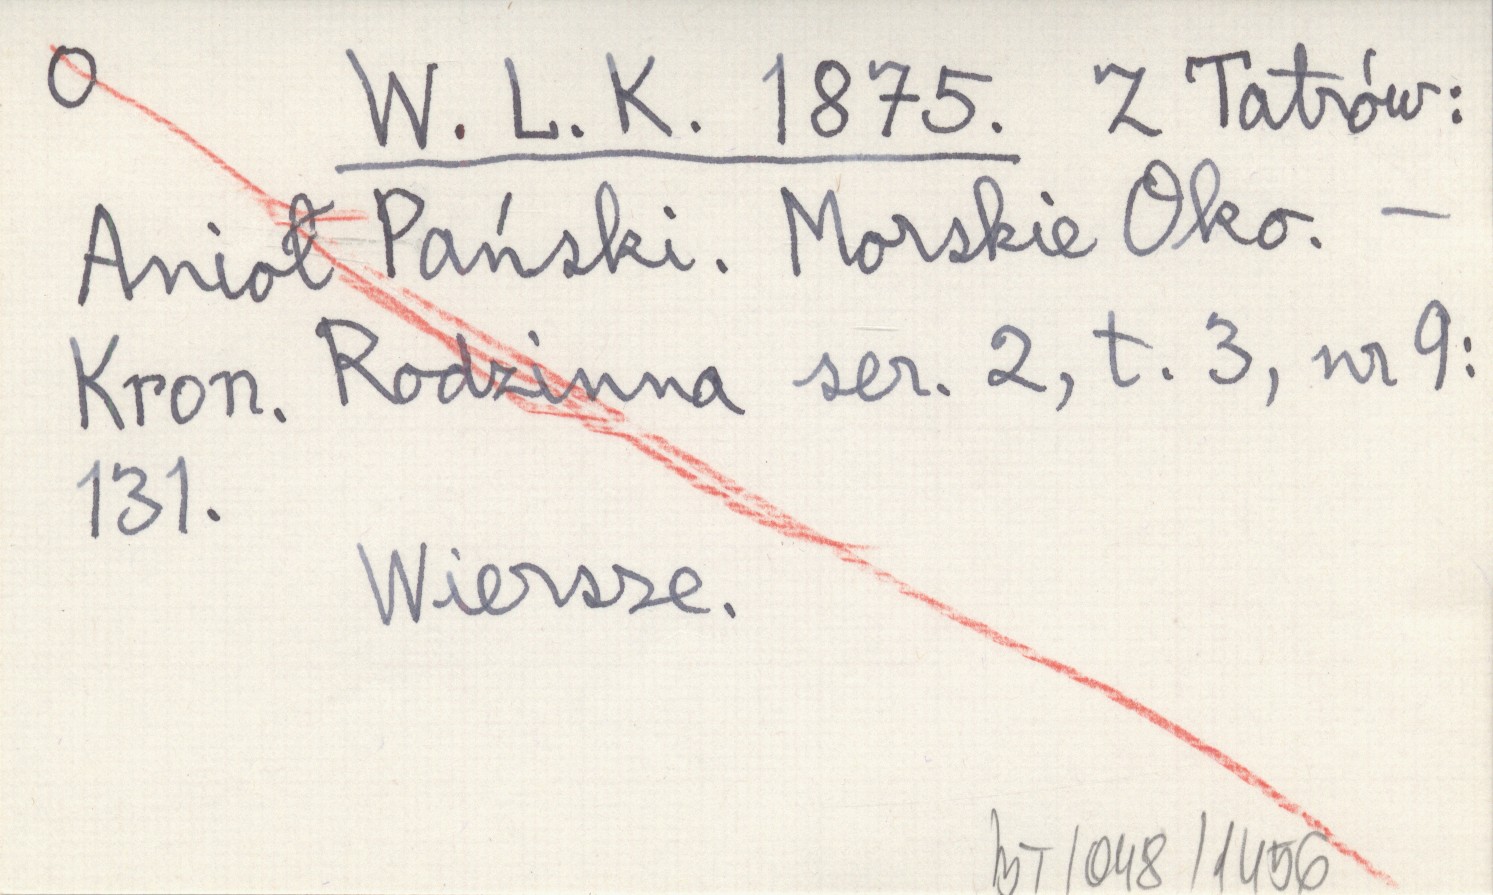 O W. L. K. 1875. Z Tatrów:
Anioł Pański. Morskie Oko. –
Kron. Rodzinna ser. 2, t. 3, nr 9:
131.
Wiersze.
BT/048/1456